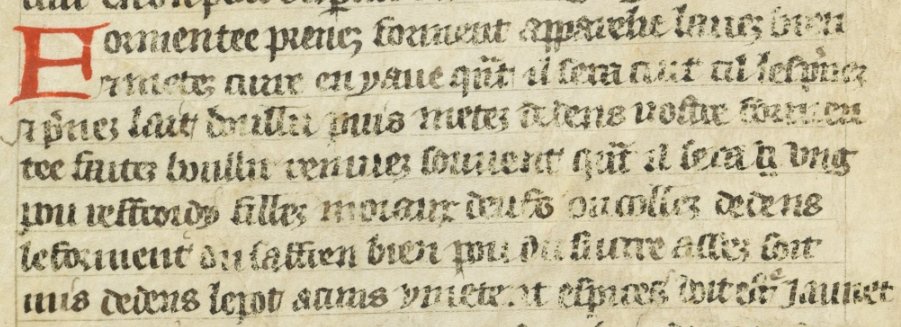 Formentee prenez forment appareilie lavez bien
& metez cuire en yaue qñt il sera cuit si lespꝛez
si pñez lait boullu puis metez dedens vostre formen
tee faites boullir remuez souuent qñt il sera ung
pou reffroidy fillez moiaux deufs ou collez dedens
le forment du saffren bien pou du succre assez soit
mis dedens le pot aucuns y metent espices doit estr̃ jaunet